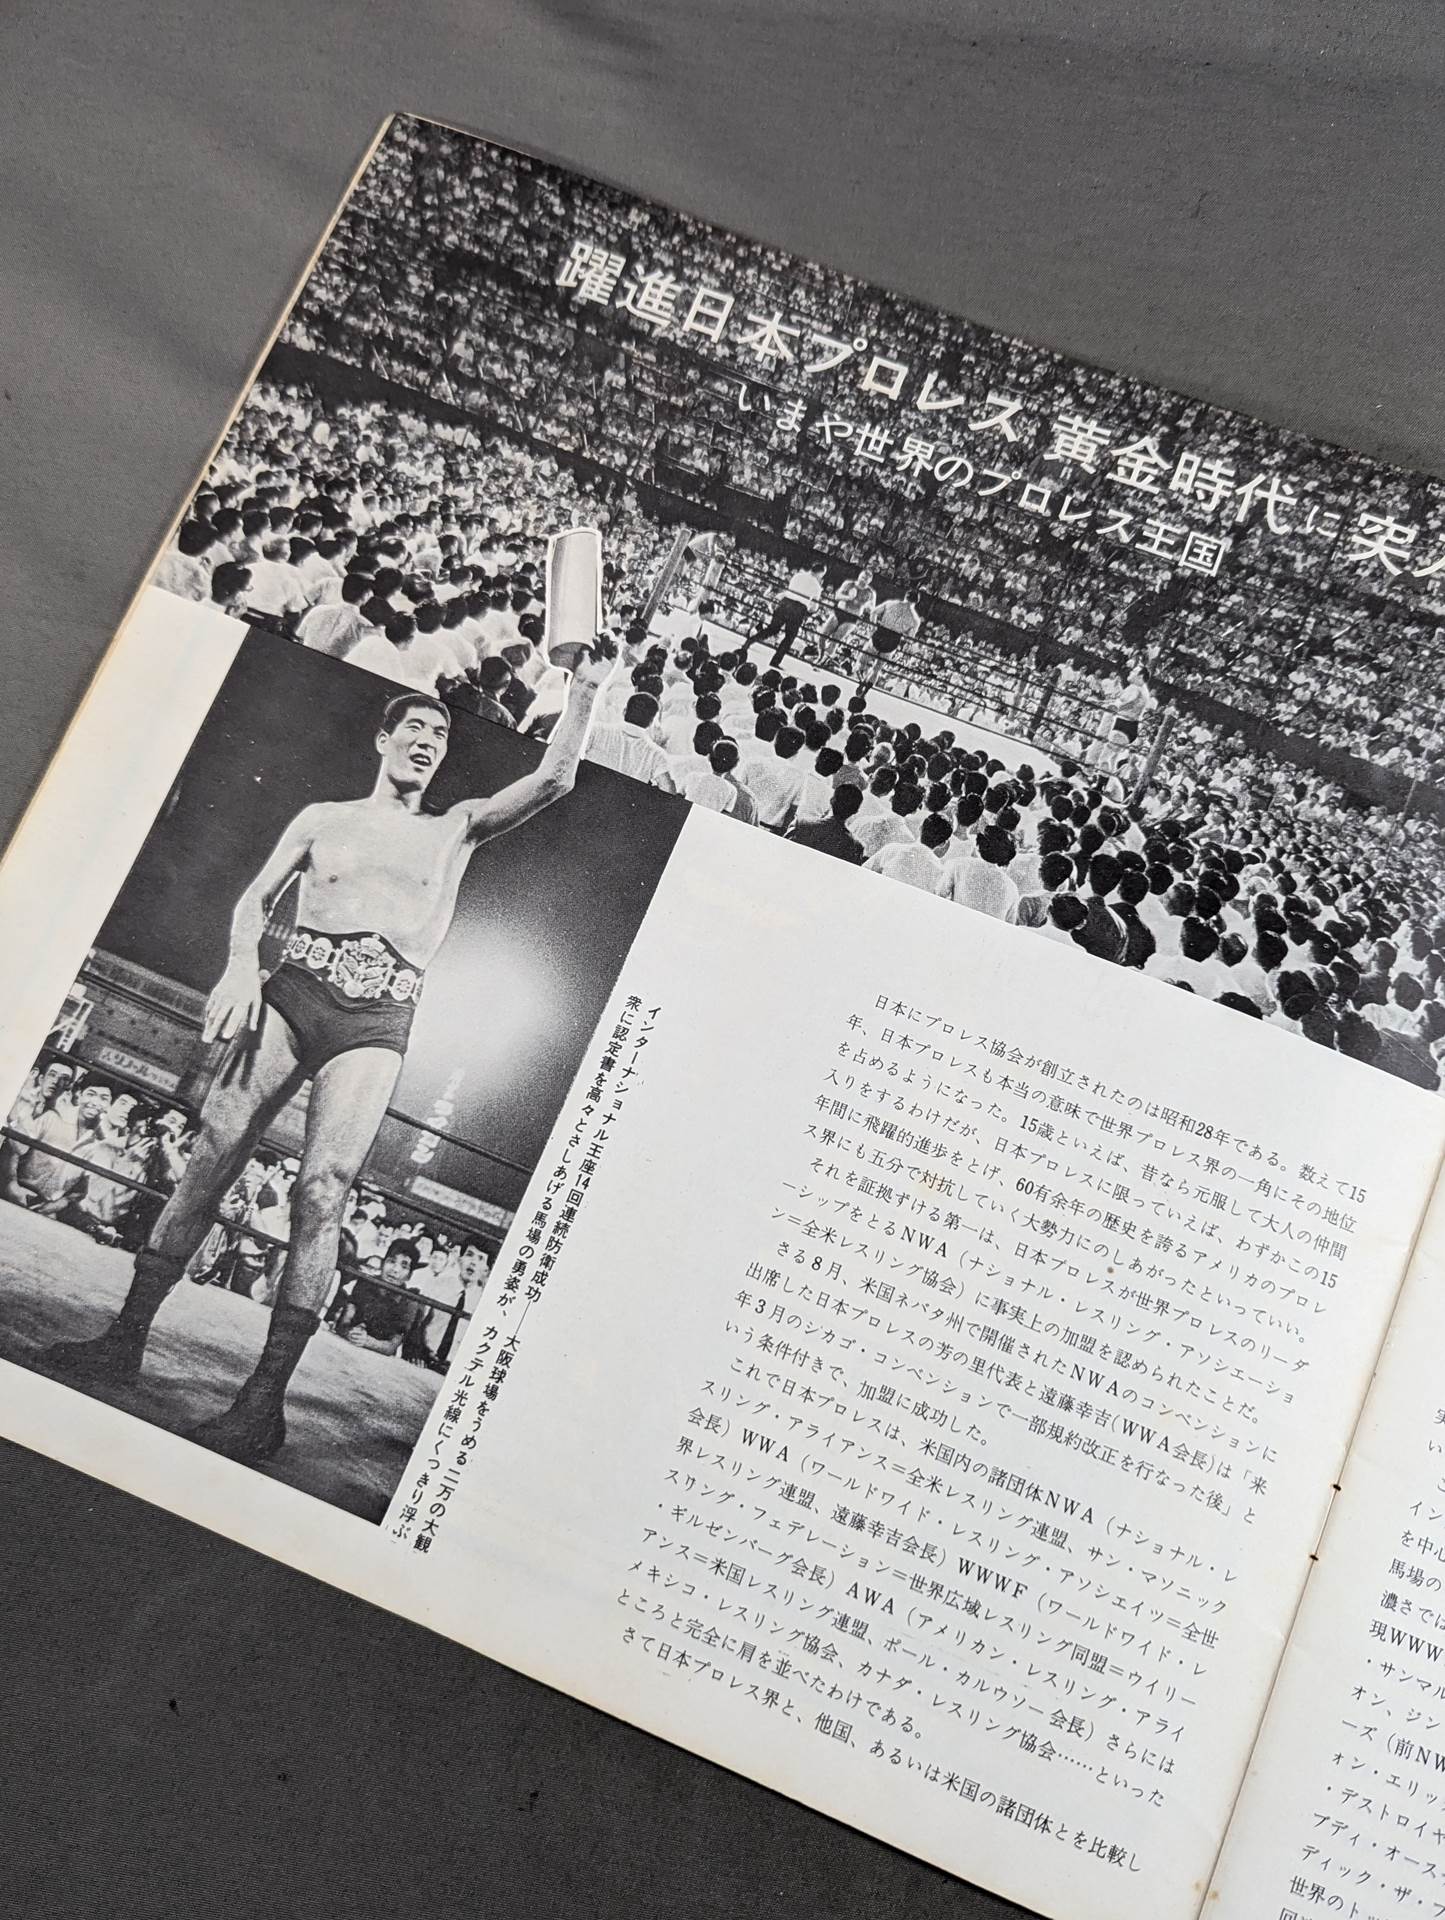 躍進日本プロレス 黄金時代に突入
いまや世界のプロレス王国
インターナショナル王座14回連続防衛成功――大阪球場をうめる二万の大観
衆に認定書を高々とさしあげる馬場の勇姿が、カクテル光線にくっきり浮ぶ
日本にプロレス協会が創立されたのは昭和28年である。数えて15
年、日本プロレスも本当の意味で世界プロレス界の一角にその地位
を占めるようになった。15歳といえば、昔なら元服して大人の仲間
入りをするわけだが、日本プロレスに限っていえば、わずかこの15
年間に飛躍的進歩をとげ、60有余年の歴史を誇るアメリカのプロレ
ス界にも五分で対抗していく大勢力にのしあがったといっていい。
それを証拠ずける第一は、日本プロレスが世界プロレスのリーダ
ーシップをとるNWA（ナショナル・レスリング・アソシエーショ
ン＝全米レスリング協会）に事実上の加盟を認められたことだ。
さる8月、米国ネバタ州で開催されたNWAのコンベンションに
出席した日本プロレスの芳の里代表と遠藤幸吉(WWA会長)は「来
年3月のシカゴ・コンベンションで一部規約改正を行なった後」と
いう条件付きで、加盟に成功した。
これで日本プロレスは、米国内の諸団体NWA（ナショナル・レ
スリング・アライアンス＝全米レスリング連盟、サン・マソニック
会長）WWA（ワールドワイド・レスリング・アソシエイツ＝全世
界レスリング連盟、遠藤幸吉会長）WWWF（ワールドワイド・レ
スリング・フェデレーション＝世界広域レスリング同盟＝ウイリー
・ギルゼンバーグ会長）AWA（アメリカン・レスリング・アライ
アンス＝米国レスリング連盟、ポール・カルウソー会長）さらには
メキシコ・レスリング協会、カナダ・レスリング協会……といった
ところと完全に肩を並べたわけである。
さて日本プロレス界と、他国、あるいは米国の諸団体とを比較し
実
い
こ
イン
を中心
馬場の
濃さでは
現WWW
・サンマル
オン、ジン
ーズ（前NW
ォン・エリッ
・デストロイヤ
ブディ・オース
ディック・ザ・ブ
世界のト